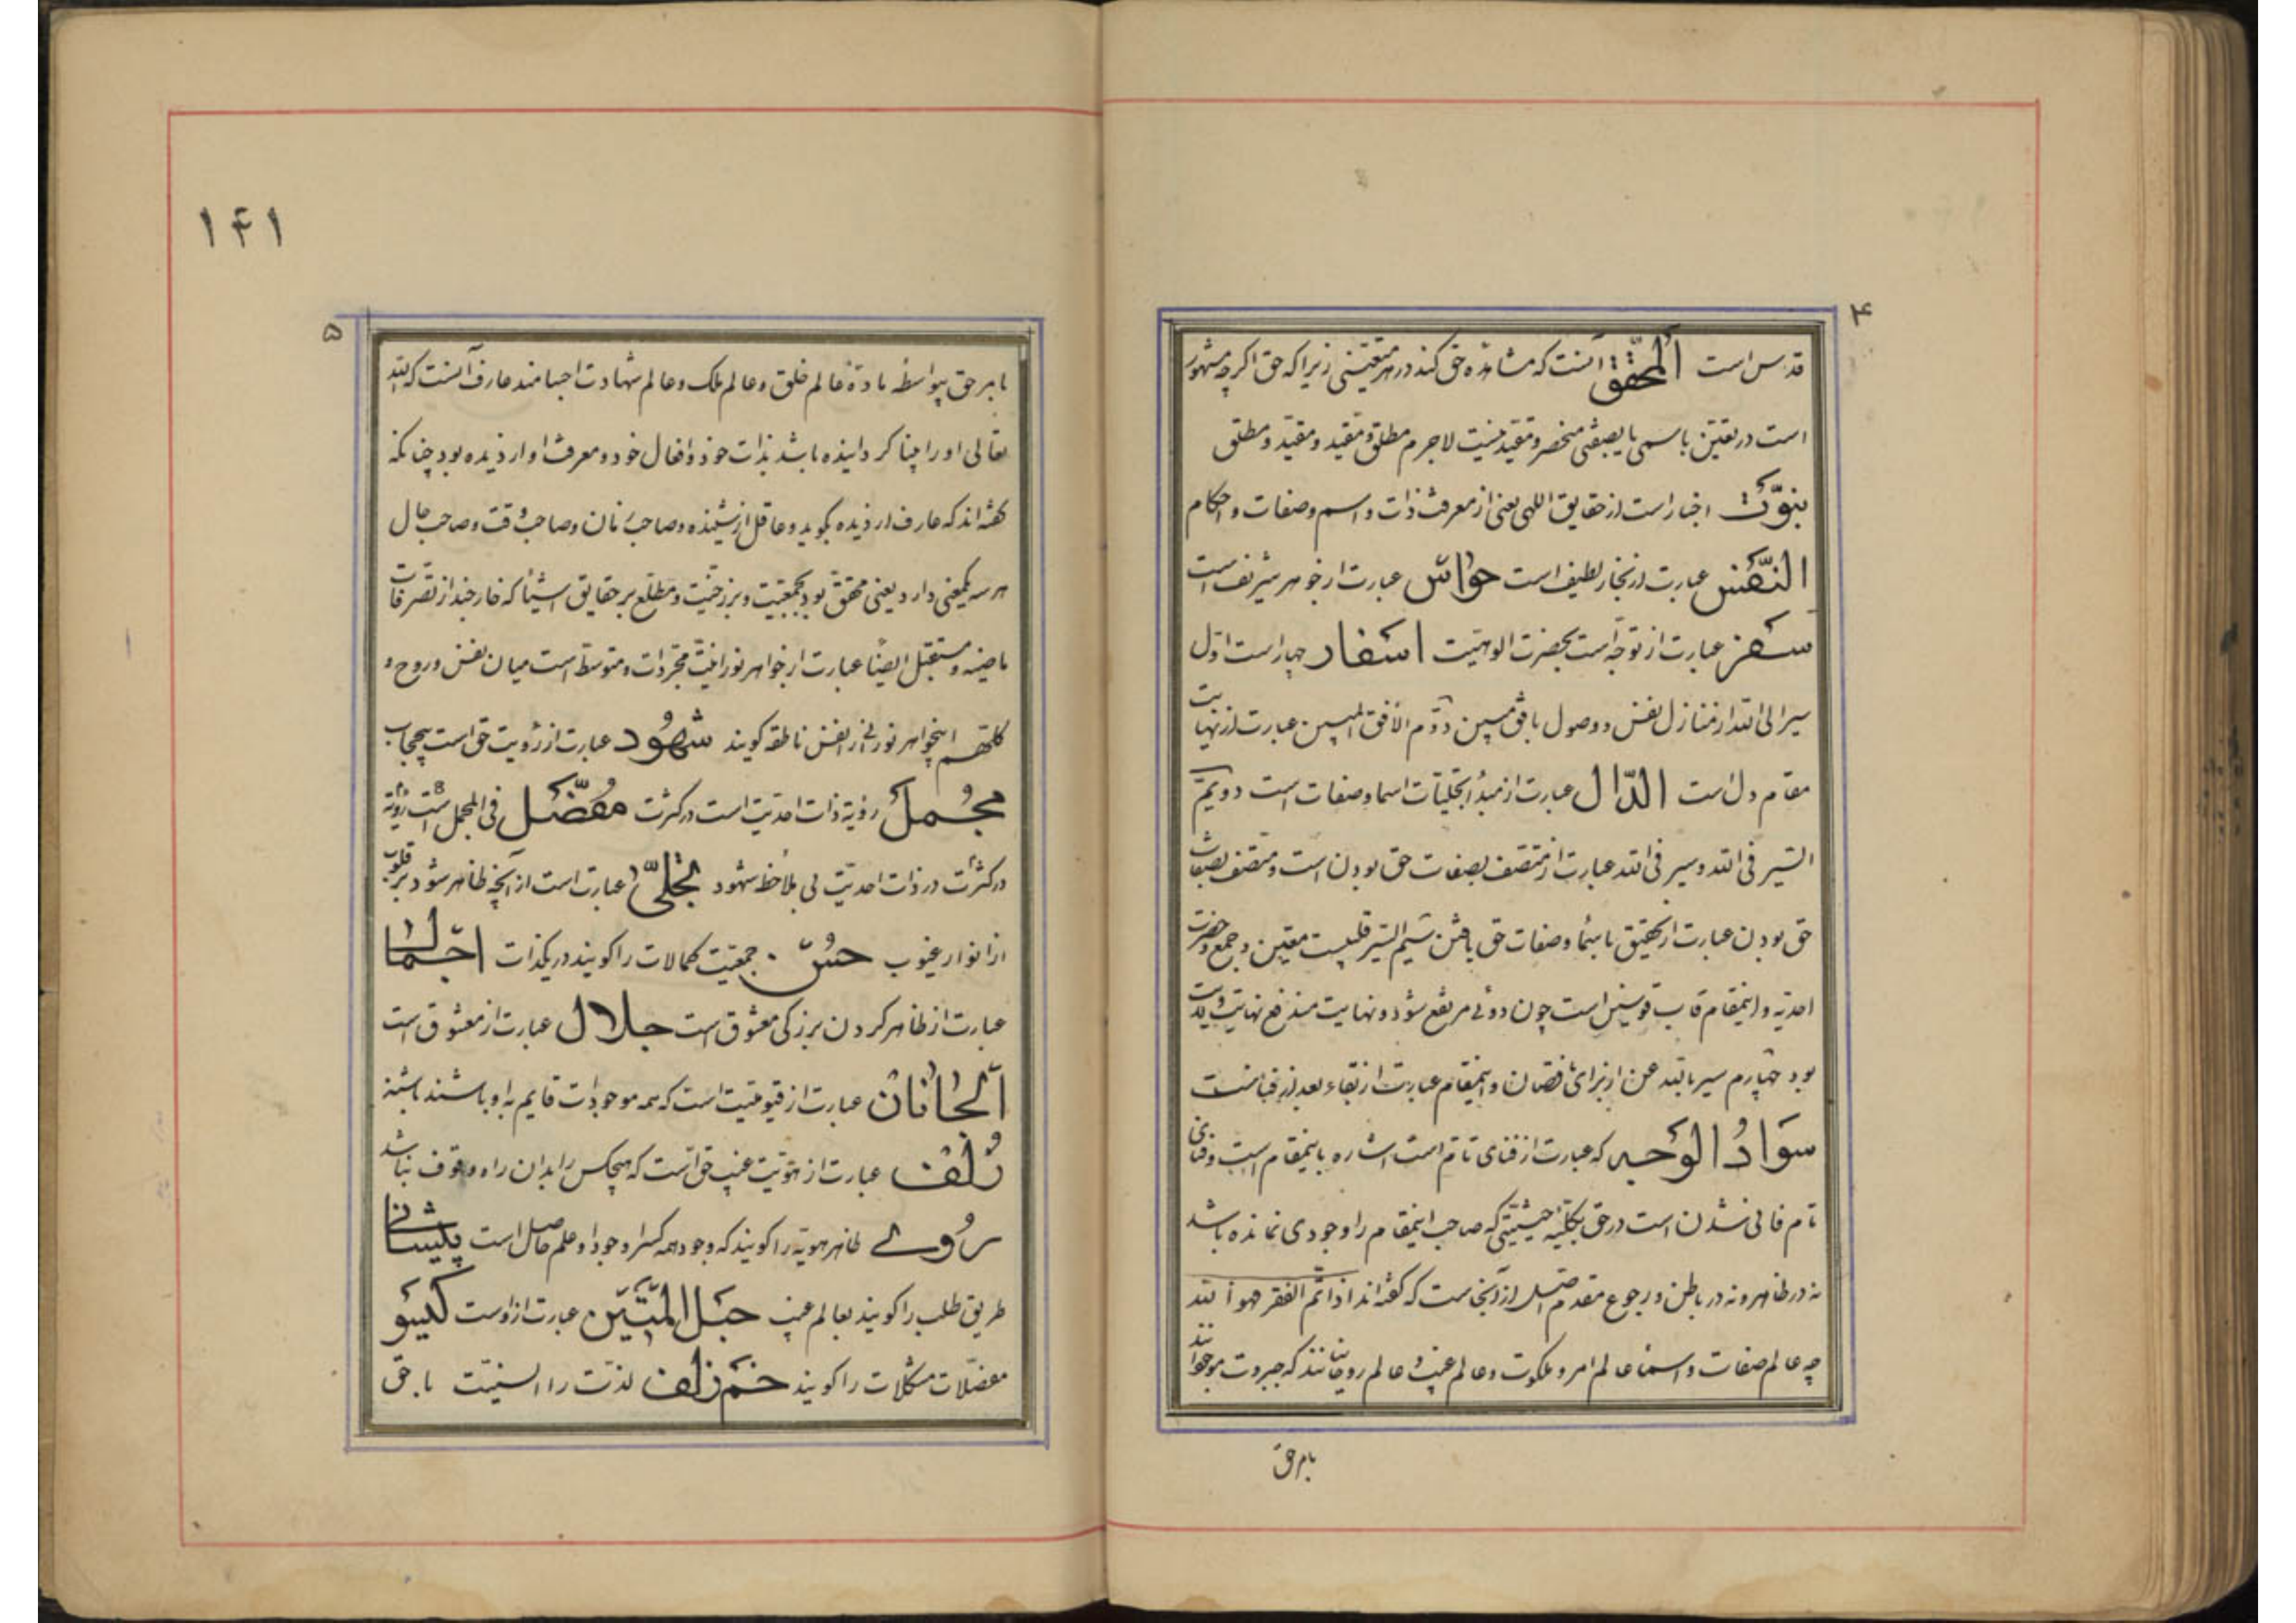 ۴
قدس است المحقق آنست که مشاهده حق کند در هر متعینی زیرا که حق اگرچه مشهود
است در تعین باسمی یا بصفتی منحصر و مقید نیست لاجرم مطلق و مقید و مقید و مطلق
نبوت اخبار است از حقایق اللهی یعنی از معرفت ذات و اسم و صفات و احکام
النفس عبارت از بخار لطیف است حواس عبارت از جوهر شریف است
سفر عبارت از توجه است بحضرت الوهیت اسفار چهار است اول
سیر الی الله از منازل نفس و وصول بافق مبین دوم الافق المبین عبارت از نهایت
مقام دل است الدال عبارت از مبدأ تجلیات اسما و صفات است دویم
السیر فی الله و سیر فی الله عبارت از متصف بصفات حق بودن است و متصف بصفات
حق بودن عبارت از تحقیق باسما و صفات حق یافتن سیم السیر معین جمع و حضرت
احدیه و اینمقام قاب قوسین است چون دوئی مرتفع شود و نهایت
بود چهارم سیر بالله عن از برای نقصان و اینمقام عبارت از بقاء بعد از فناست
سواد الوجه که عبارت از فنای تام است اشاره باینمقام است و فنای
تام فانی شدن است در حق بکلیه حیثیتی که صاحب اینمقام را وجودی نمانده باشد
نه در ظاهر و نه در باطن و رجوع مقدم اصل از آنجاست که گفته‌اند اذا تم الفقر هو الله
چه عالم صفات و اسما عالم امر و ملکوت و عالم غیب و عالم روحانند که جبروت موجودند
بامر حق
۱۴۱
۵
بامر حق بیواسطه ماده عالم خلق و عالم ملک و عالم شهادت اجسامند عارف آنست که الله
تعالی او را بینا گردانیده باشد بذات خود و افعال خود و معرفت او از دیده بود چنانکه
گفته‌اند که عارف از دیده بگوید و عاقل از شنیده و صاحب نان و صاحب وقت و صاحب حال
هر سه یکمعنی دارد یعنی محقق بود بجمعیت و برزخیت و مطلع بر حقایق اشیا که خارجند از تصرفات
ماضیه و مستقبل ایضا عبارت از جواهر نورانیت مجردات و متوسط است میان نفس و روح و
کلتهم اینجواهر نورانی را نفس ناطقه گویند شهود عبارت از رؤیت حق است بیحجاب
مجمل رؤیة ذات احدیت است در کثرت مفصل فی المجمل است رؤیة
در کثرات در ذات احدیت بی ملاحظ شهود تجلی عبارت است از آنچه ظاهر شود بر قلوب
از انوار غیوب حسن جمعیت کمالات را گویند در یکذات اجمال
عبارت از ظاهر کردن بزرگی معشوق است جلال عبارت از معشوق است
الجانان عبارت از قیومیت است که همه موجودات قایم به او باشند
زلف عبارت از هویت غیب حق است که هیچکس را بدان راه وقوف نباشد
روی ظاهر هویة را گویند که وجود همه کس از وجود او علم حاصل است پیشانی
طریق طلب را گویند بعالم غیب حبل المتین عبارت از اوست گیسو
معضلات مشکلات را گویند خم زلف لذت را انسیت با حق